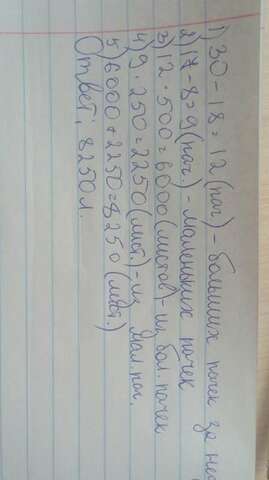 1) 30 - 18 = 12 (пач) - больших пачек за нед
2) 17 - 8 = 9 (пач.) - маленьких пачек
3) 12 · 500 = 6000 (листов) - из бол. пачек
4) 9 · 250 = 2250 (лист.) - из мал. пач.
5) 6000 + 2250 = 8250 (лист.)
Ответ: 8250 л.